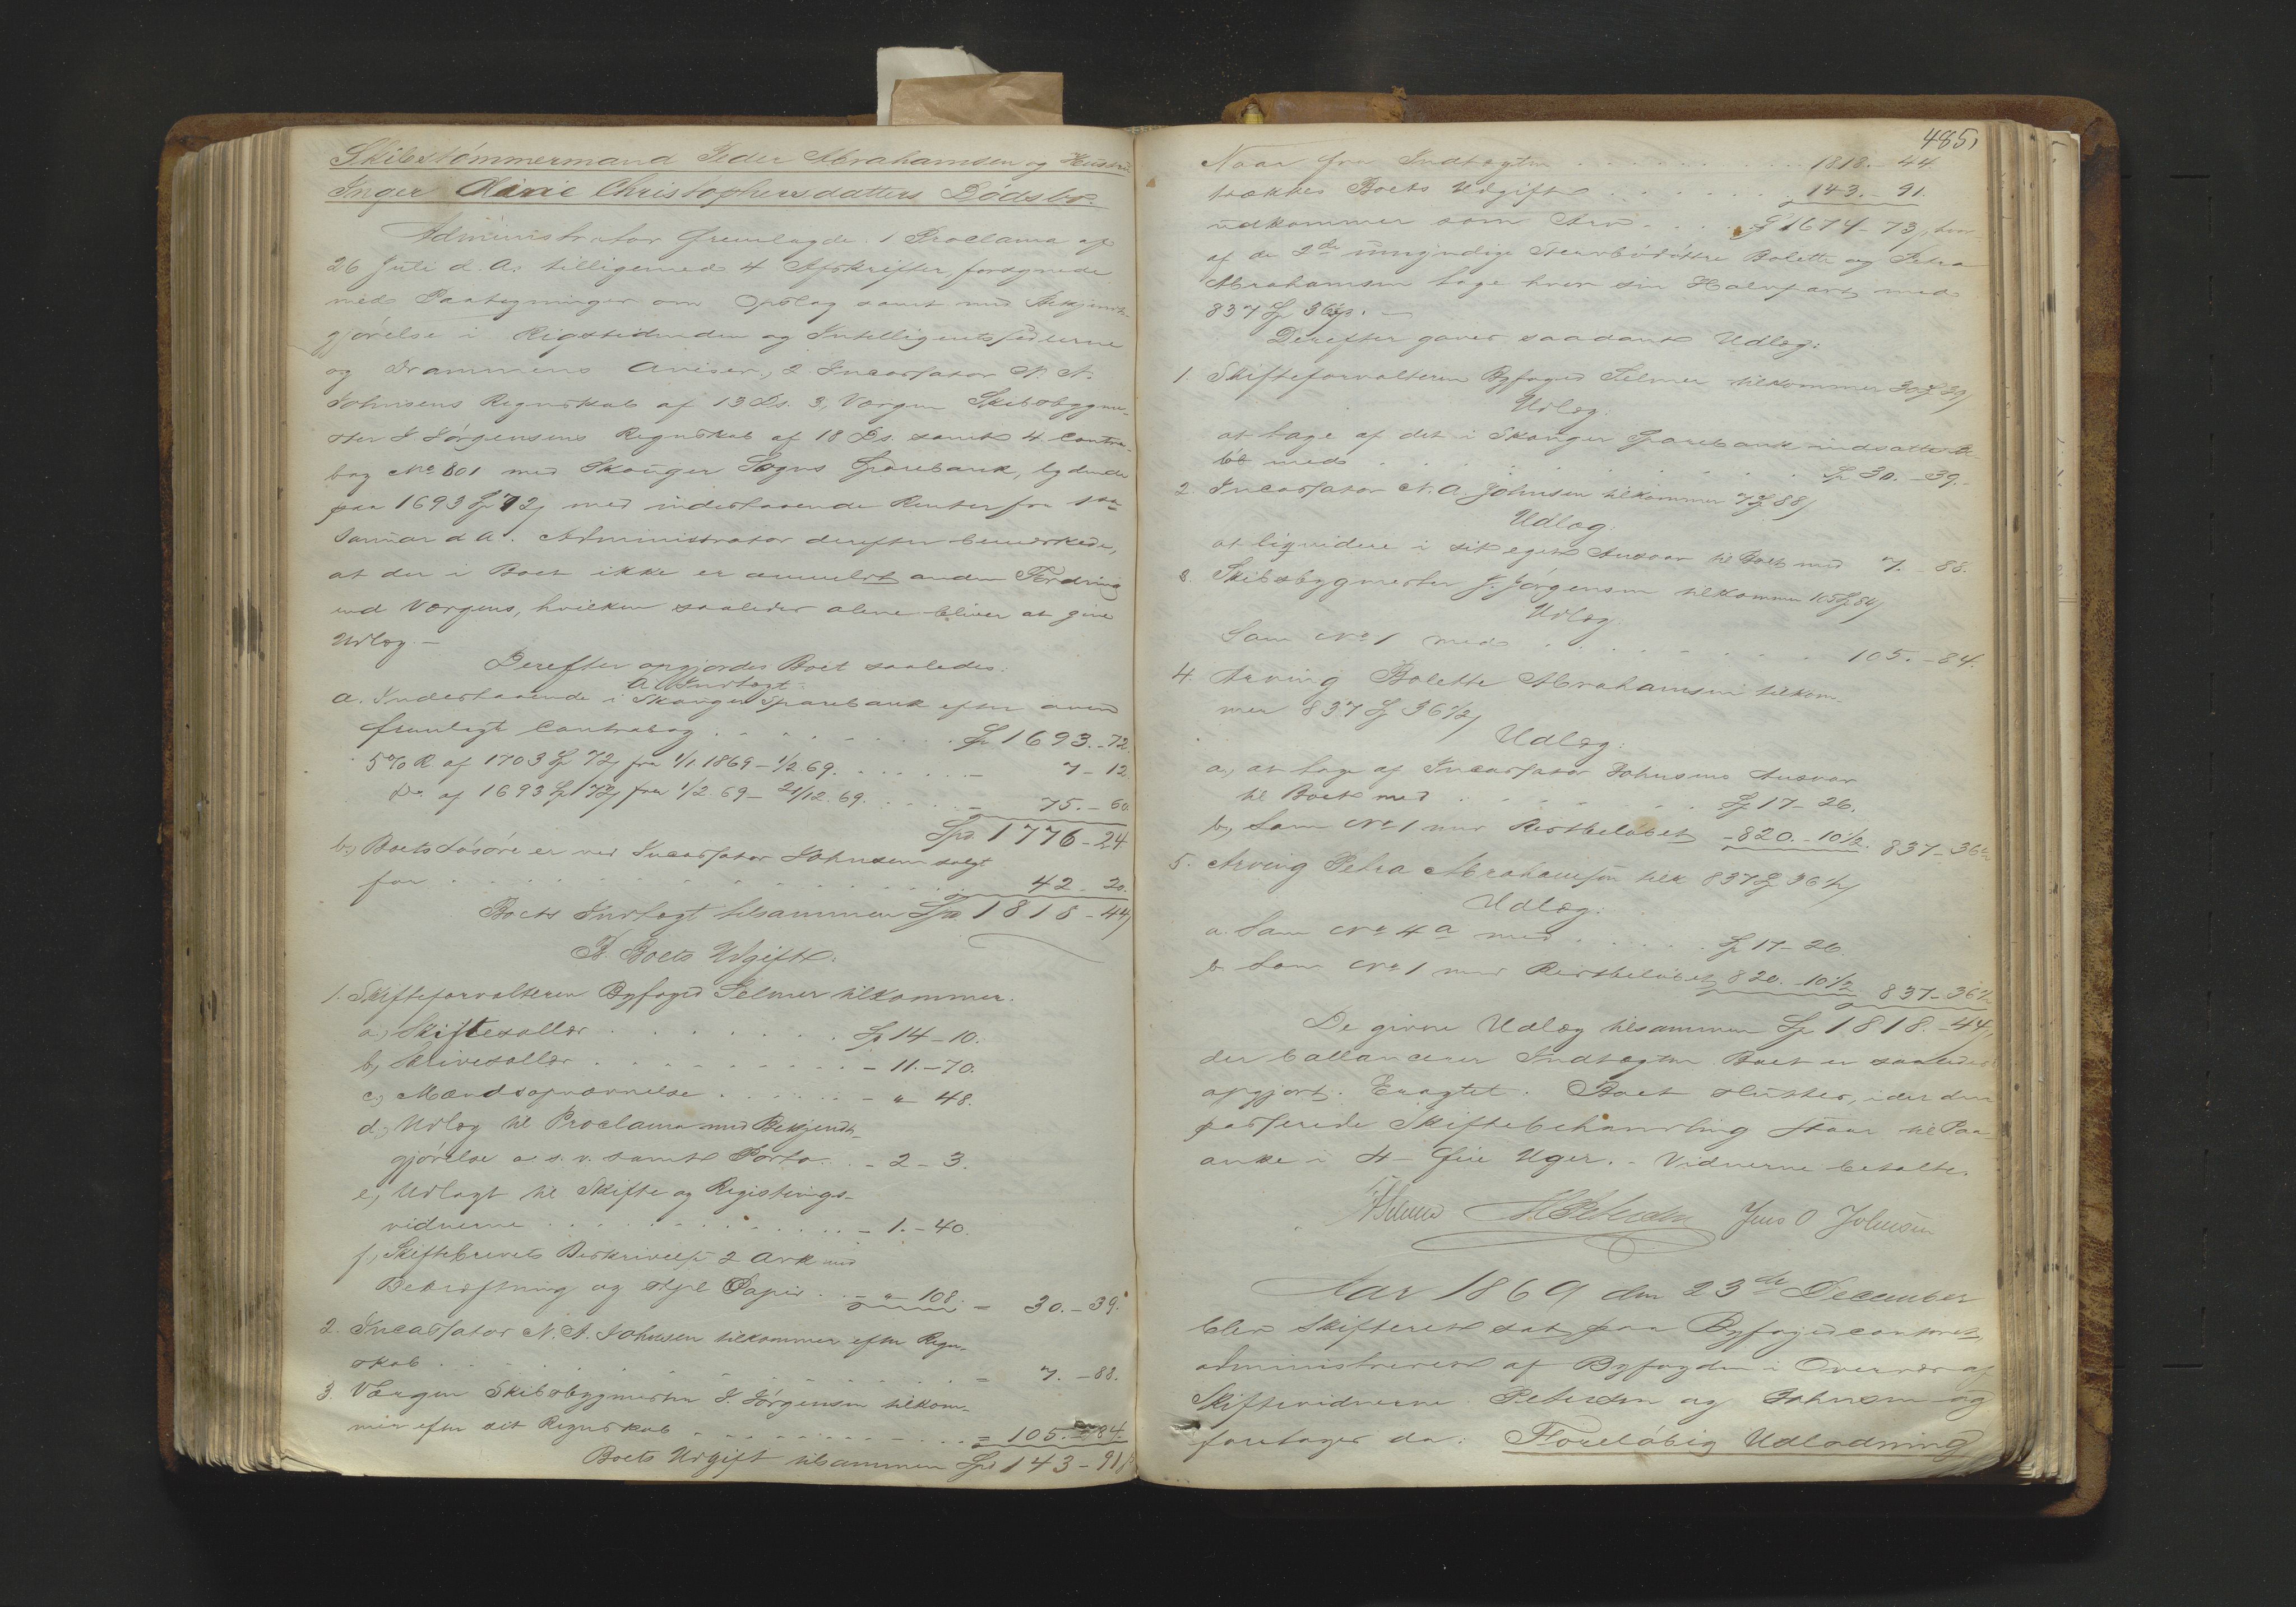 Skibstømmermand Peder Abrahamsen og Hustru
Inger Marie Christophersdatters Dødsbo.
Administrator fremlagde 1 Proclama af
26 Juli d. A. tilligemed 4 Afskrifter, forsynede
med Paategninger om Opslag samt med Bekjendt-
gjørelse i Rigstidenden og Intelligentssedlerne
og Drammens Aviser, 2 Incassator N. A.
Johnsens Regnskab af 13 Ds. 3, Værgen Skibsbygme-
ster J Jørgensens Regnskab af 18 Ds. samt 4. Contra-
bog No 801 med Skouger Sogns Sparebank, lydende
paa 1693 Sp 72 med indestaaende Renter fra 1ste
Januar d A. Administrator derefter bemærkede,
at der i Boet ikke er anmeldt anden Fordring
end Værgens, hvilken saaledes alene bliver at give
Udlæg.–
Derefter opgjordes Boet saaledes:
A. Indtægt.
a. Indestaaende i Skouger Sparebank efter oven
fremlagt Contrabog . . . Sp 1693.-72.
5% R. af 1703 Sp 72 fra 1/1 1869 – 1/2 69. . . . – 7-12
Do. af 1693 Sp 72 fra 1/2. 69 – 21/12. 69. . . . – 75.-60.
Spd 1776-24
b, Boets Løsøre er ved Incassator Johnsen solgt
for . . . 42-20.
Boets Indtægt tilsammen Spd 1818-44
B. Boets Udgift.
1. Skifteforvalteren Byfoged Selmer tilkommer.
a, Skiftesallær . . . Sp 14-10.
b, Skrivesallær . . . – 11.-70.
c, Mændsopnævnelse . . . – " 48.
d, Udlæg til Proclama med Bekjendt-
gjørelse o. s. v. samt Porto. . – 2-3.
e, Udlagt til Skifte og Registrerings-
vidnerne . . . – 1.-40.
f, Skiftebrevets Beskrivelse 2 Ark med
Bekræftning og stpl. Papir . . – " – 108. = 30.-39.
2. Incassator N. A. Johnsen tilkommer efter Regn-
skab . . . = 7.-88.
3. Værgen Skibsbygmester J. Jørgensen tilkom-
mer efter sit Regnskab . . . = 105.-84.
Boets Udgift tilsammen Spd 143-91
485,
Naar fra Indtægten . . . 1818.-44
trækkes Boets Udgift . . . 143.-91.
udkommer som Arv . . . Sp 1674-73, hvor-
af de 2de umyndige Stervbodøttre Bolette og Petra
Abrahamsen tage hver sin Halvpart med
837 Sp 36½. –
Derefter gaves saadant Udlæg:
1. Skifteforvalteren Byfoged Selmer tilkommer 30 Sp 39
Udlæg:
at tage af det i Skouger Sparebank indsatte Be-
løb med . . . Sp 30.-39.
2. Incassator N. A. Johnsen tilkommer 7 Sp 88
Udlæg:
at liqvidere i sit eget Ansvar til Boet med 7.-88.
3. Skibsbygmester J. Jørgensen tilkommer 105 Sp 84
Udlæg.
Som No 1 med . . . 105.-84.
4. Arving Bolette Abrahamsen tilkom-
mer 837 Sp 36½
Udlæg:
a, at tage af Incassator Johnsens Ansvar
til Boet med . . . Sp 17-26.
b, Som No 1 med Restbeløbet -820.-10½. 837-36½
5. Arving Petra Abrahamsen tilk 837 Sp 36½
Udlæg:
a. Som No 4a med . . . Sp 17-26
b. Som No 1 med Restbeløbet 820.-10½ 837-36½
De givne Udlæg tilsammen Sp 1818.-44,
der ballancerer Indtægten. Boet er saaledes
opgjort. Eragtet: Boet sluttes, idet den
passerede Skiftebehandling staar til Paa-
anke i 4– fire Uger. – Vidnerne betalte.
Selmer Petersen Jens O Johnsen
Aar 1869 den 23de December
blev Skifteret sat paa Byfogedcontoret,
administreret af Byfogden i Overvær af
Skiftevidnerne Petersen og Johnsen og
foretoges da: Foreløbig Udlodning